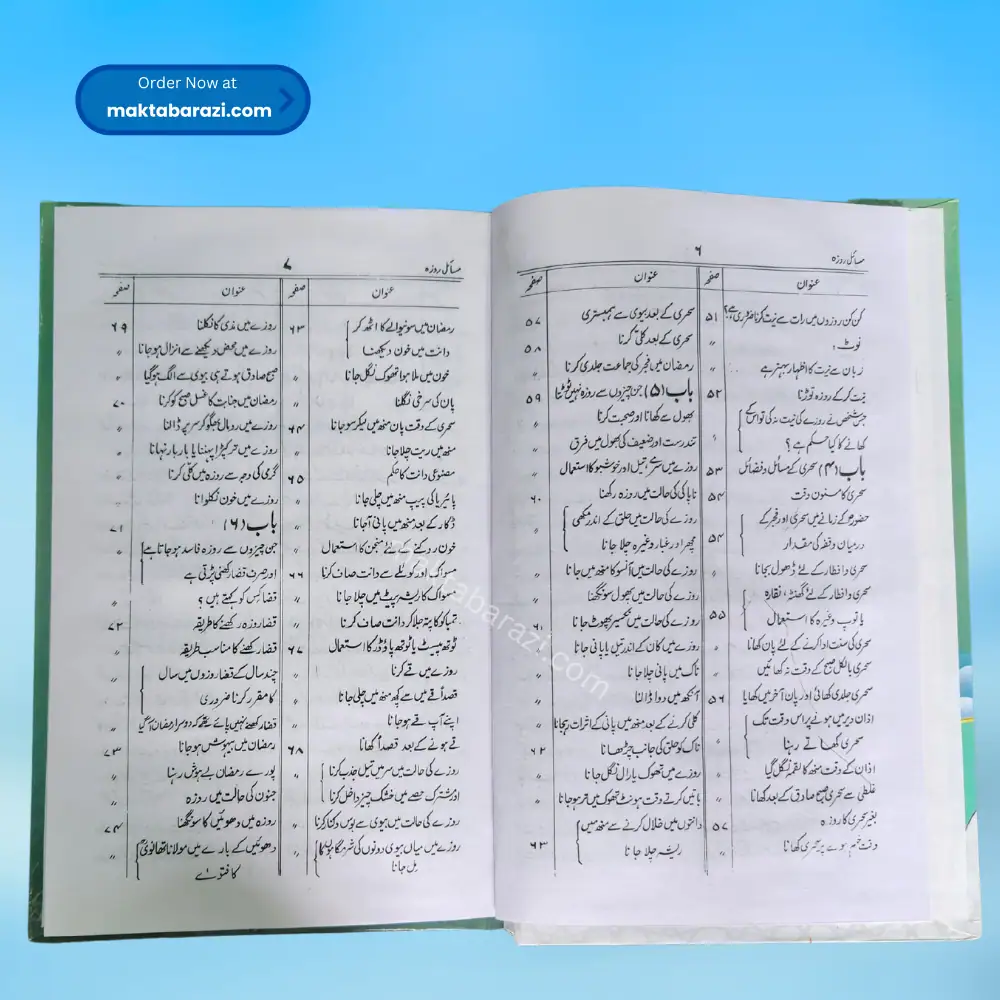 Order Now at
maktabarazi.com
مسائل روزہ
۶
عنوان
صفحہ
کن کن روزوں میں رات سے نیت کرنا ضروری ہے؟ ۵۱
نوٹ: 〃
زبان سے نیت کا اظہار بہتر ہے 〃
نیت کر کے روزہ توڑنا ۵۲
جس شخص نے روزے کی نیت نہ کی تو اس کے
کھانے کا کیا حکم ہے؟ 〃
باب (۴) سحری کے مسائل و فضائل ۵۳
سحری کا مسنون وقت ۵۴
حضورؐ کے زمانے میں سحری اور فجر کے
درمیان وقفہ کی مقدار ۵۴
سحری و افطار کے لئے ڈھول بجانا 〃
سحری و افطار کے لئے گھنٹہ، نقارہ
یا توپ وغیرہ کا استعمال ۵۵
سحری کی سنت ادا کرنے کے لئے پان کھانا 〃
سحری بالکل صبح کے وقت نہ کھائیں 〃
سحری جلدی کھائی اور پان آخر میں کھایا ۵۶
اذان دیر میں ہونے پر اس وقت تک
سحری کھاتے رہنا 〃
اذان کے وقت منھ کا لقمہ نگل گیا 〃
غلطی سے سحری صبح صادق کے بعد کھانا 〃
بغیر سحری کا روزہ ۵۷
وقت ختم ہونے پر سحری کھانا 〃
عنوان
صفحہ
سحری کے بعد بیوی سے ہمبستری ۵۷
سحری کے بعد کلی کرنا ۵۸
رمضان میں فجر کی جماعت جلدی کرنا 〃
باب (۵) جن چیزوں سے روزہ نہیں ٹوٹتا ۵۹
بھول سے کھانا اور صحبت کرنا 〃
تندرست اور ضعیف کی بھول میں فرق 〃
روزے میں سرمے تیل اور خوشبو کا استعمال 〃
ناپاکی کی حالت میں روزہ رکھنا ۶۰
روزے کی حالت میں حلق کے اندر مکھی
مچھر اور غبار وغیرہ چلا جانا 〃
روزے کی حالت میں آنسو کا منھ میں جانا 〃
روزے کی حالت میں پھول سونگھنا 〃
روزے کی حالت میں نکسیر پھوٹ جانا ۶۱
روزے میں کان کے اندر تیل یا پانی جانا 〃
ناک میں پانی چلا جانا 〃
آنکھ میں دوا ڈالنا 〃
کلی کرنے کے بعد منھ میں پانی کے اثرات رہجانا 〃
ناک کو حلق کی جانب چڑھانا ۶۲
روزے میں تھوک یا رال نگل جانا 〃
باتیں کرتے وقت ہونٹ تھوک میں تر ہو جانا 〃
دانتوں میں خلال کرنے سے منھ میں
ریت چلا جانا ۶۳
مسائل روزہ
۷
عنوان
صفحہ
رمضان میں سونیوالے کا اٹھ کر
دانت میں خون دیکھنا ۶۳
خون میں ملا ہوا تھوک نگل جانا 〃
پان کی سرخی نگلنا 〃
سحری کے وقت پان منھ میں لیکر سو جانا ۶۴
منھ میں ریت چلا جانا 〃
مصنوعی دانت کا حکم ۶۵
پائیریا کی پیپ منھ میں چلی جانا 〃
ڈکار کے بعد منھ میں پانی آجانا 〃
خون روکنے کے لئے منجن کا استعمال 〃
مسواک اور کوئلے سے دانت صاف کرنا ۶۶
مسواک کا ریشہ پیٹ میں چلا جانا 〃
تمباکو کا پتہ جلا کر دانت صاف کرنا 〃
ٹوتھ پیسٹ یا ٹوتھ پاؤڈر کا استعمال ۶۷
روزے میں قے کرنا 〃
قصداً قے میں سے کچھ منھ میں چلی جانا 〃
اپنے آپ قے ہو جانا 〃
قے ہونے کے بعد قصداً کھانا ۶۸
روزے کی حالت میں سر میں تیل جذب کرنا
اور مشترک حصے میں خشک چیز داخل کرنا 〃
روزے کی حالت میں بیوی سے بوس و کنار کرنا 〃
روزے میں میاں بیوی دونوں کی شرمگاہوں کا
مل جانا 〃
عنوان
صفحہ
روزے میں مذی کا نکلنا ۶۹
روزے میں محض دیکھنے سے انزال ہو جانا 〃
صبح صادق ہوتے ہی بیوی سے الگ ہو گیا 〃
رمضان میں جنابت کا غسل صبح کو کرنا ۷۰
روزے میں رومال بھگو کر سر پر ڈالنا 〃
روزے میں تر کپڑا پہننا یا بار بار نہانا 〃
گرمی کی وجہ سے روزہ میں کلی کرنا 〃
روزے میں خون نکلوانا 〃
باب (۶) ۷۱
جن چیزوں سے روزہ فاسد ہو جاتا ہے
اور صرف قضا رکھنی پڑتی ہے 〃
قضا کس کو کہتے ہیں؟ 〃
قضا روزہ رکھنے کا طریقہ ۷۲
قضا رکھنے کا مناسب طریقہ 〃
چند سال کے قضا روزوں میں سال
کا مقرر کرنا ضروری 〃
قضا رکھنے نہیں پائے تھے کہ دوسرا رمضان آگیا 〃
رمضان میں بیہوش ہو جانا ۷۳
پورے رمضان بے ہوش رہنا 〃
جنون کی حالت میں روزہ 〃
روزہ میں دھوئیں کا سونگھنا ۷۴
دھوئیں کے بارے میں مولانا تھانویؒ
کا فتوےٰ 〃
maktabarazi.com